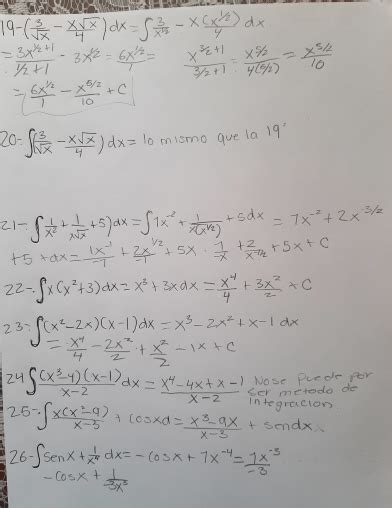 19-(3/√x - x√x/4)dx = ∫ 3/x^1/2 - x(x^1/2)/4 dx
= 3x^1/2+1/1/2+1 - 3x^1/2 = 6x^1/2/1 x^3/2+1/3/2+1 = x^5/2/4(5/2) = x^5/2/10
= 6x^1/2/1 - x^5/2/10 + C
20-∫(3/√x - x√x/4) dx = lo mismo que la 19'
21-∫(1/x² + 1/x√x + 5)dx = ∫1x^-2 + 1/x(x^1/2) + 5dx = 7x^-2 + 2x^-3/2
+5 + dx = 1x^-1/-1 + 2x^1/2/-1 + 5x · 1/-x + 2/x^-1/2 + 5x + C
22-∫x(x²+3)dx = x³+3xdx = x^4/4 + 3x²/2 + C
23-∫(x²-2x)(x-1)dx = x³-2x²+x-1 dx
= x^4/4 - 2x²/2 + x²/2 - 1x + C
24∫(x³-4)(x-1)/x-2 dx = x^4-4x+x-1/x-2 No se puede por
ser metodo de
integracion
25-∫x(x²-9)/x-3 + cosxd = x³-9x/x-3 + sendx
26-∫senx + 1/x^4 dx = -cosx + 7x^-4 = 1x^-3/-3
-cosx + 1/3x³